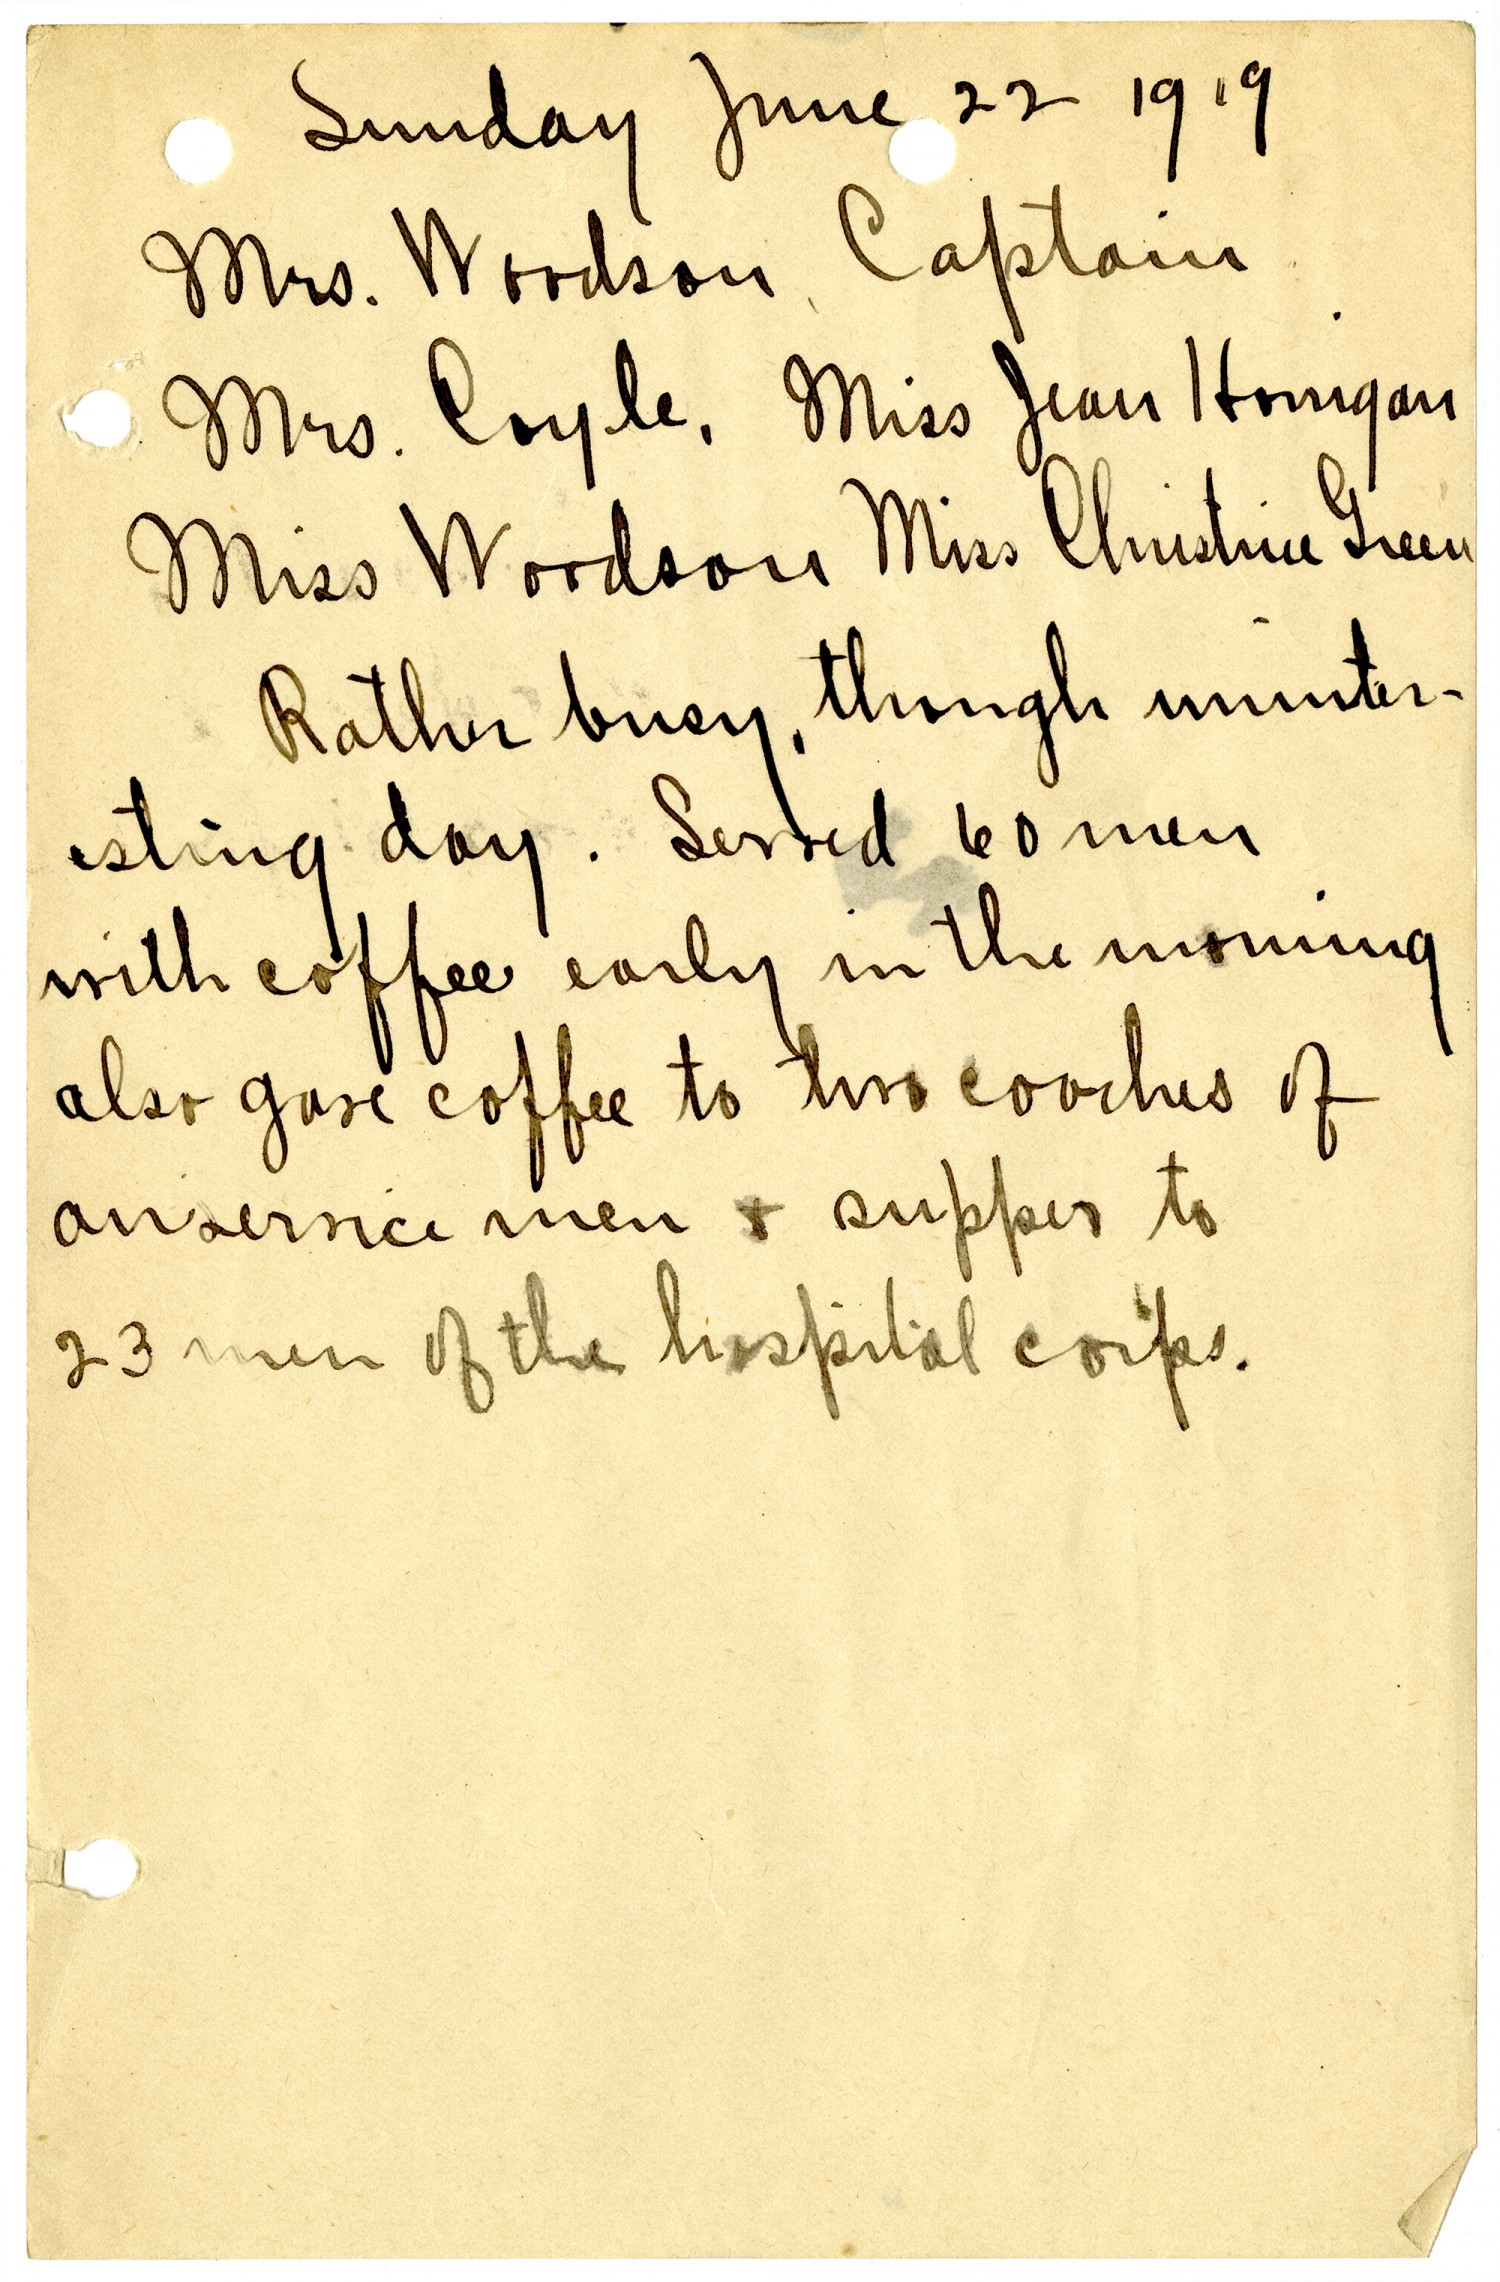 Sunday June 22 1919
Mrs. Woodson, Captain
Mrs. Coyle, Miss Jean Horrigan
Miss Woodson Miss Christine Green
Rather busy, though uninter-
esting day. Served 60 men
with coffee early in the morning
also gave coffee to two coaches of
onservice men & supper to
23 men of the hospital corps.